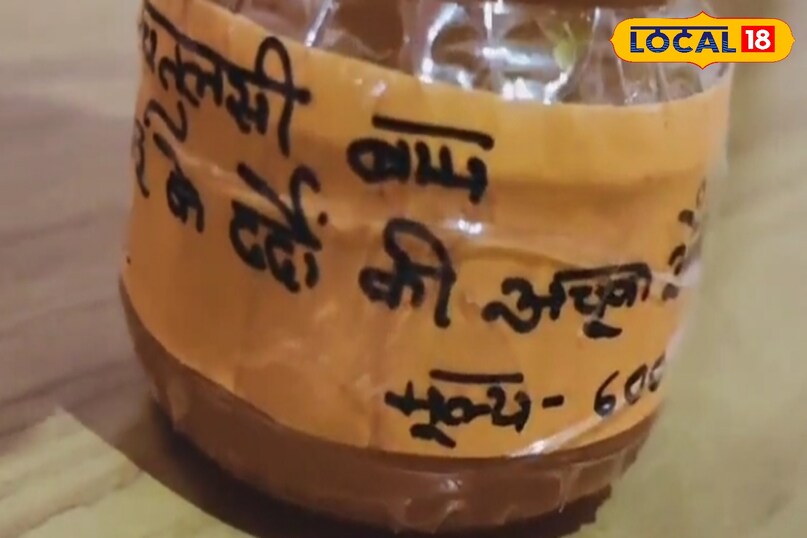 LOCAL 18
तुलसी बाम
के दर्द की अचूक
मूल्य - 600